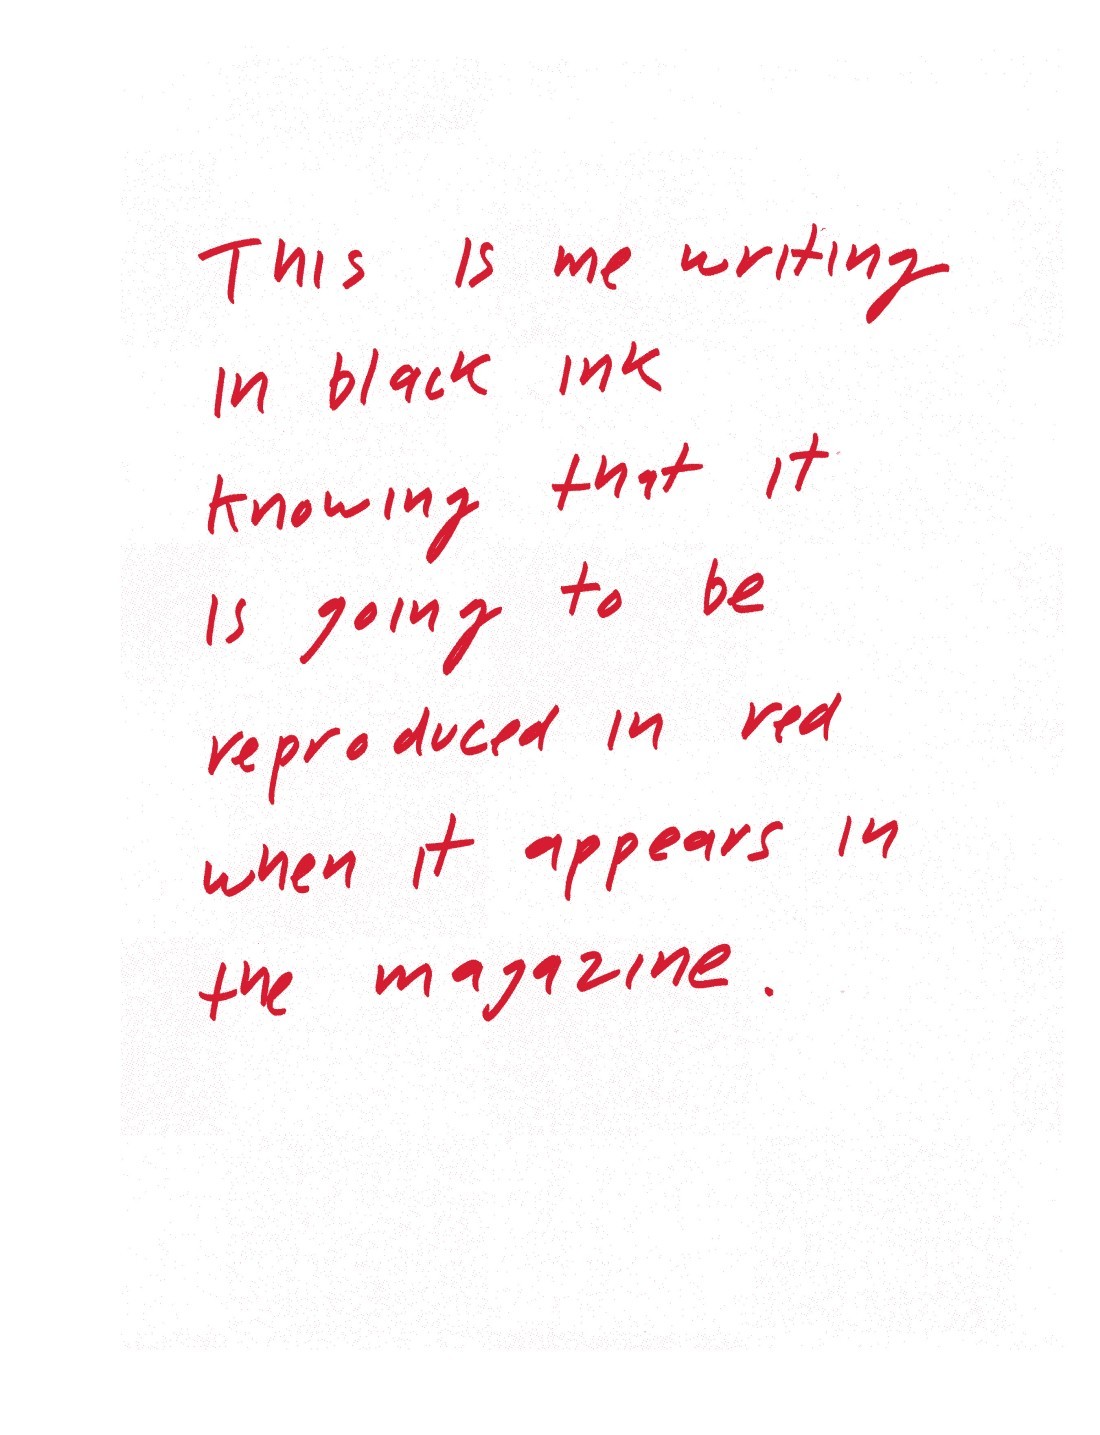 This is me writing
in black ink
knowing that it
is going to be
reproduced in red
when it appears in
the magazine.